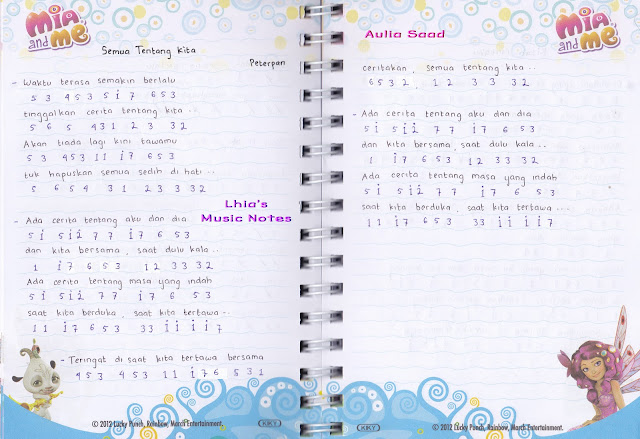 Mia and me
Semua Tentang Kita
Peterpan
- Waktu terasa semakin berlalu
5 3 4 5 3 5 i 7 6 5 3
tinggalkan cerita tentang kita ..
5 6 5 4 3 1 2 3 3 2
Akan tiada lagi kini tawamu
5 3 4 5 3 1 1 i 7 6 5 3
tuk hapuskan semua sedih di hati ...
5 6 5 4 3 1 2 3 3 3 2
Lhia's
Music Notes
- Ada cerita tentang aku dan dia
5 i 5 i 2̇ 7 7 i 7 6 5 3
dan kita bersama, saat dulu kala ..
1 i 7 6 5 3 1 2 3 3 3 2
Ada cerita tentang masa yang indah
5 i 5 i 2̇ 7 7 i 7 6 5 3
saat kita berduka, saat kita tertawa ..
1 1 i 7 6 5 3 3 3 i i i i 7
- Teringat di saat kita tertawa bersama
4 5 3 4 5 3 1 1 i 7 6 5 3 1
© 2012 Lucky Punch, Rainbow, March Entertainment.
KIKY
Mia and me
Aulia Saad
ceritakan, semua tentang kita ..
6 5 3 2, 1 2 3 3 3 2
- Ada cerita tentang aku dan dia
5 i 5 i 2̇ 7 7 i 7 6 5 3
dan kita bersama, saat dulu kala ..
1 i 7 6 5 3 1 2 3 3 3 2
Ada cerita tentang masa yang indah
5 i 5 i 2̇ 7 7 i 7 6 5 3
saat kita berduka, saat kita tertawa ...
1 1 i 7 6 5 3 3 3 i i i i 7
© 2012 Lucky Punch, Rainbow, March Entertainment.
KIKY